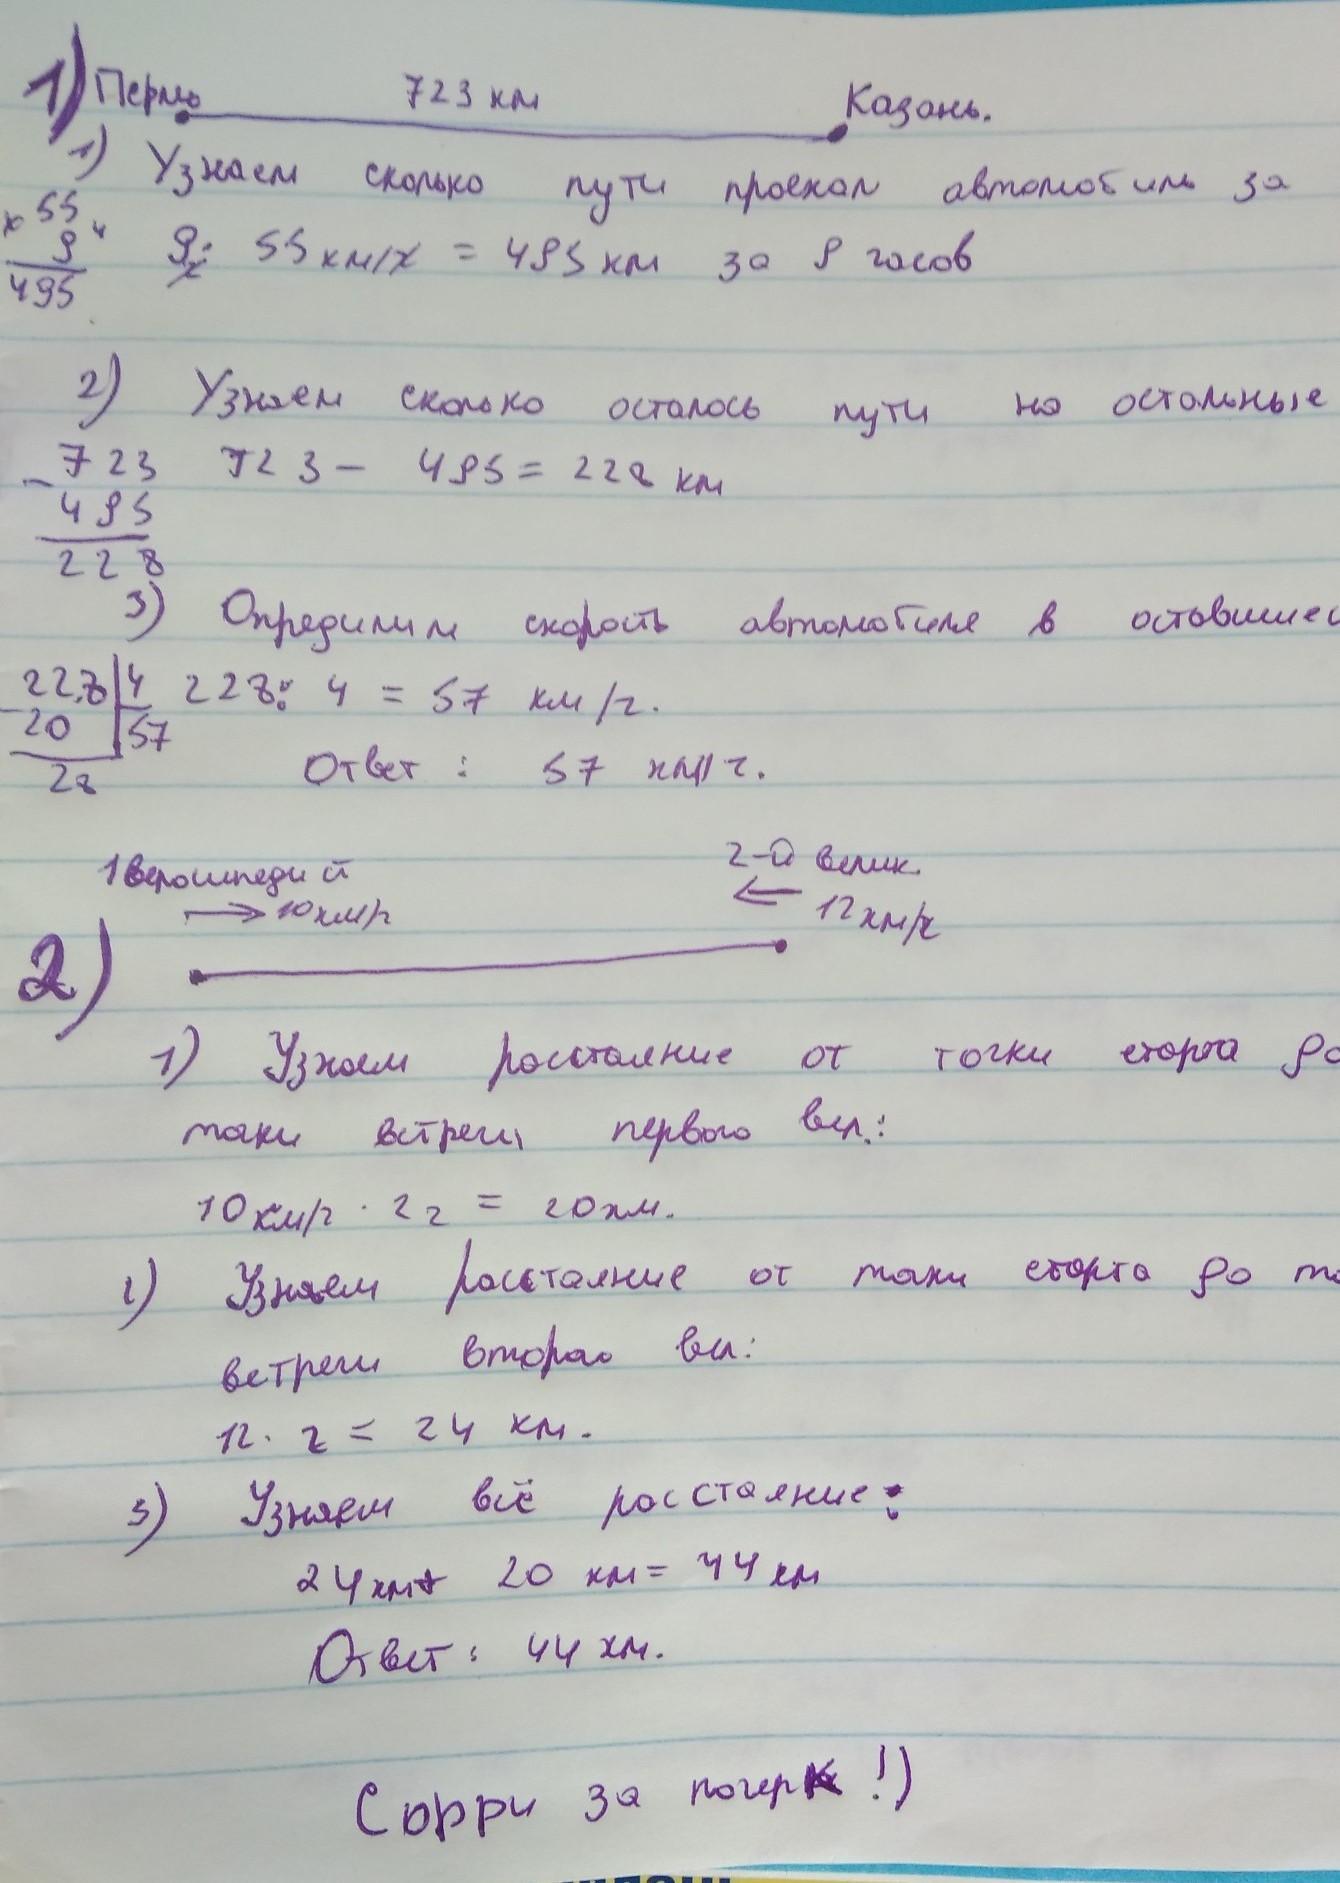 1) Пермь 723 км Казань.
1) Узнаем сколько пути проехал автомобиль за
х 55 9 ч 495
9 · 55 км/ч = 495 км за 9 часов
2) Узнаем сколько осталось пути на остальные
723 - 495 = 228 км
- 723
495
228
3) Определим скорость автомобиля в оставшиес
228 : 4 = 57 км/ч.
228 4
- 20 57
28
Ответ : 57 км/ч.
2)
1 Велосипедист
10 км/ч
2-й велик.
12 км/ч
1) Узнаем расстояние от точки старта до
точки встречи первого вел.:
10 км/ч · 2 ч = 20 км.
2) Узнаем расстояние от точки старта до то
встречи второго вел:
12 · 2 = 24 км.
3) Узнаем всё расстояние:
24 км + 20 км = 44 км
Ответ : 44 км.
Сорри за почерк !)